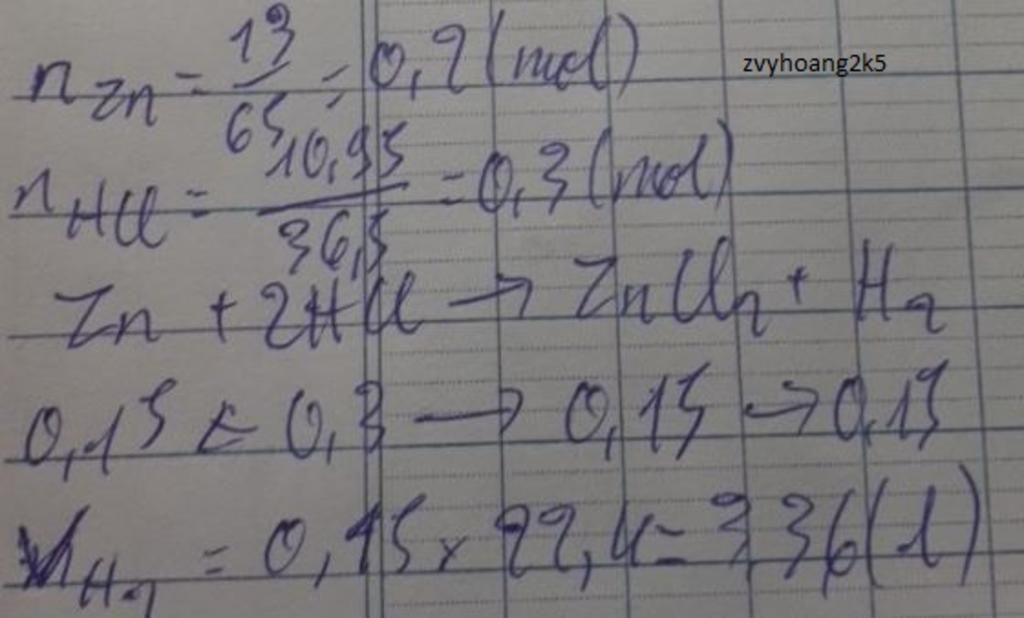 n Zn = 13/65 = 0,2 (mol)
zvyhoang2k5
n HCl = 10,95/36,5 = 0,3 (mol)
Zn + 2HCl → ZnCl2 + H2
0,15 ← 0,3 → 0,15 → 0,15
V H2 = 0,15 x 22,4 = 3,36 (l)